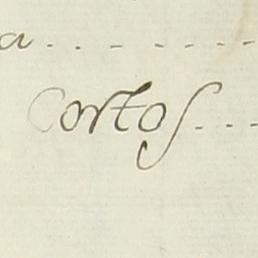 a . . . . . . .
Cortos . . . .